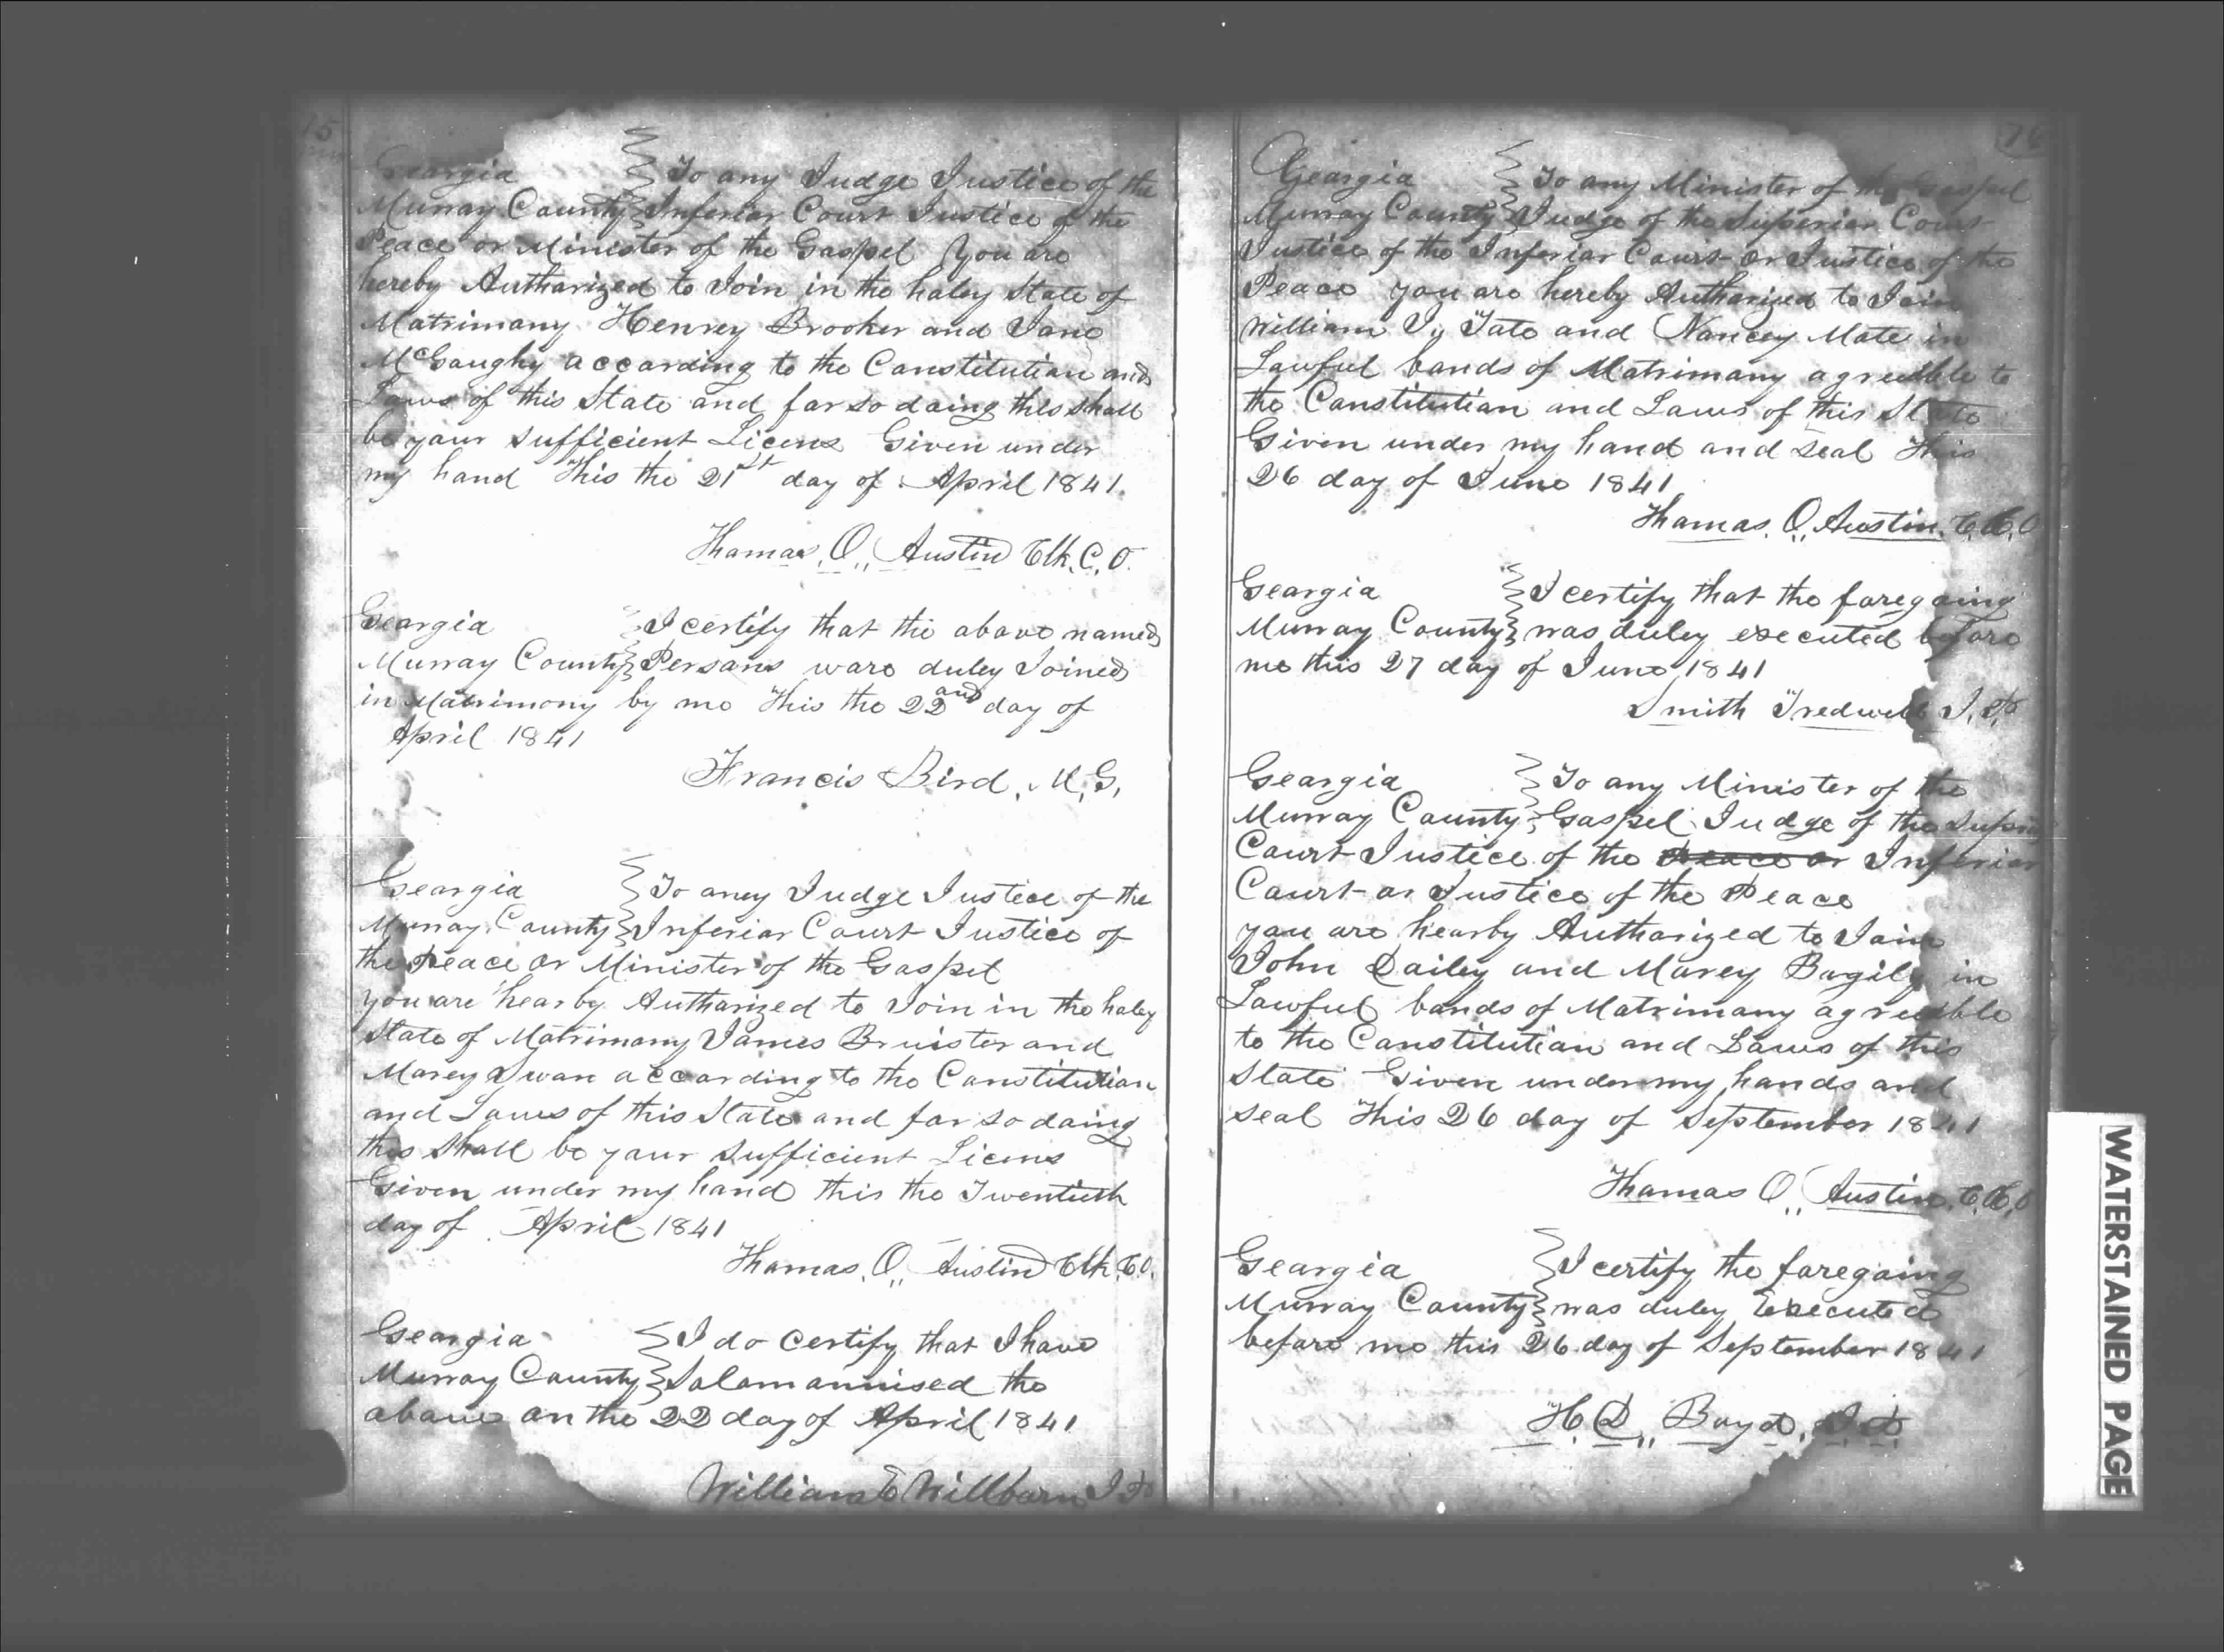 15
Georgia To any Judge Justice of the
Murray County Inferior Court Justice of the
Peace or Minister of the Gospel You are
hereby Autharized to Join in the holey State of
Matrimony Henrey Brooker and Jane
McGaughy according to the Constitution and
Laws of this State and for so doing this shall
be your sufficient Licens Given under
my hand This the 21st day of April 1841.
Thomas. O,, Austin Clk. C. O.
Georgia I certify that the above named
Murray County Persons ware duley Joined
in Matrimony by me This the 22and day of
April 1841
Francis Bird, M, G,
Georgia To aney Judge Justice of the
Murray County Inferior Court Justice of
the Peace or Minister of the Gospel
you are hearby Autharized to Join in the holey
State of Matrimony James Bruister and
Marey Swan according to the Constitution
and Laws of this State and for so doing
this shall be your sufficient Licens
Given under my hand this the Twentieth
day of April 1841
Thomas. O,, Austin Clk. C.O.
Georgia I do Certify that I have
Murray County Salamannised the
above on the 22 day of April 1841
William Willborn J. P.
76
Georgia To any Minister of the Gospel
Murray County Judge of the Superior Court
Justice of the Inferior Court or Justice of the
Peace you are hereby Autharized to Join
William Tate and Nancey Mate in
Lawful bands of Matrimony agreeible to
the Constitution and Laws of this State
Given under my hand and seal This
26 day of June 1841
Thomas. O,, Austin. C,C,O
Georgia I certify that the foregoing
Murray County was duley executed before
me this 27 day of June 1841
Smith Tredwell J. P.
Georgia To any Minister of the
Murray County Gospel Judge of the Super
Court Justice of the Peace or Inferior
Court or Justice of the Peace
you are hearby Autharized to Join
John Dailey and Marey Bagily in
Lawful bands of Matrimony agreeible
to the Constitution and Laws of this
State Given under my hands and
seal This 26 day of September 1841
Thomas O,, Austin, C,C,O
Georgia I certify the foregoing
Murray County was duley Executed
before me this 26 day of September 1841
H. D,, Boyd, J. P.
WATERSTAINED PAGE